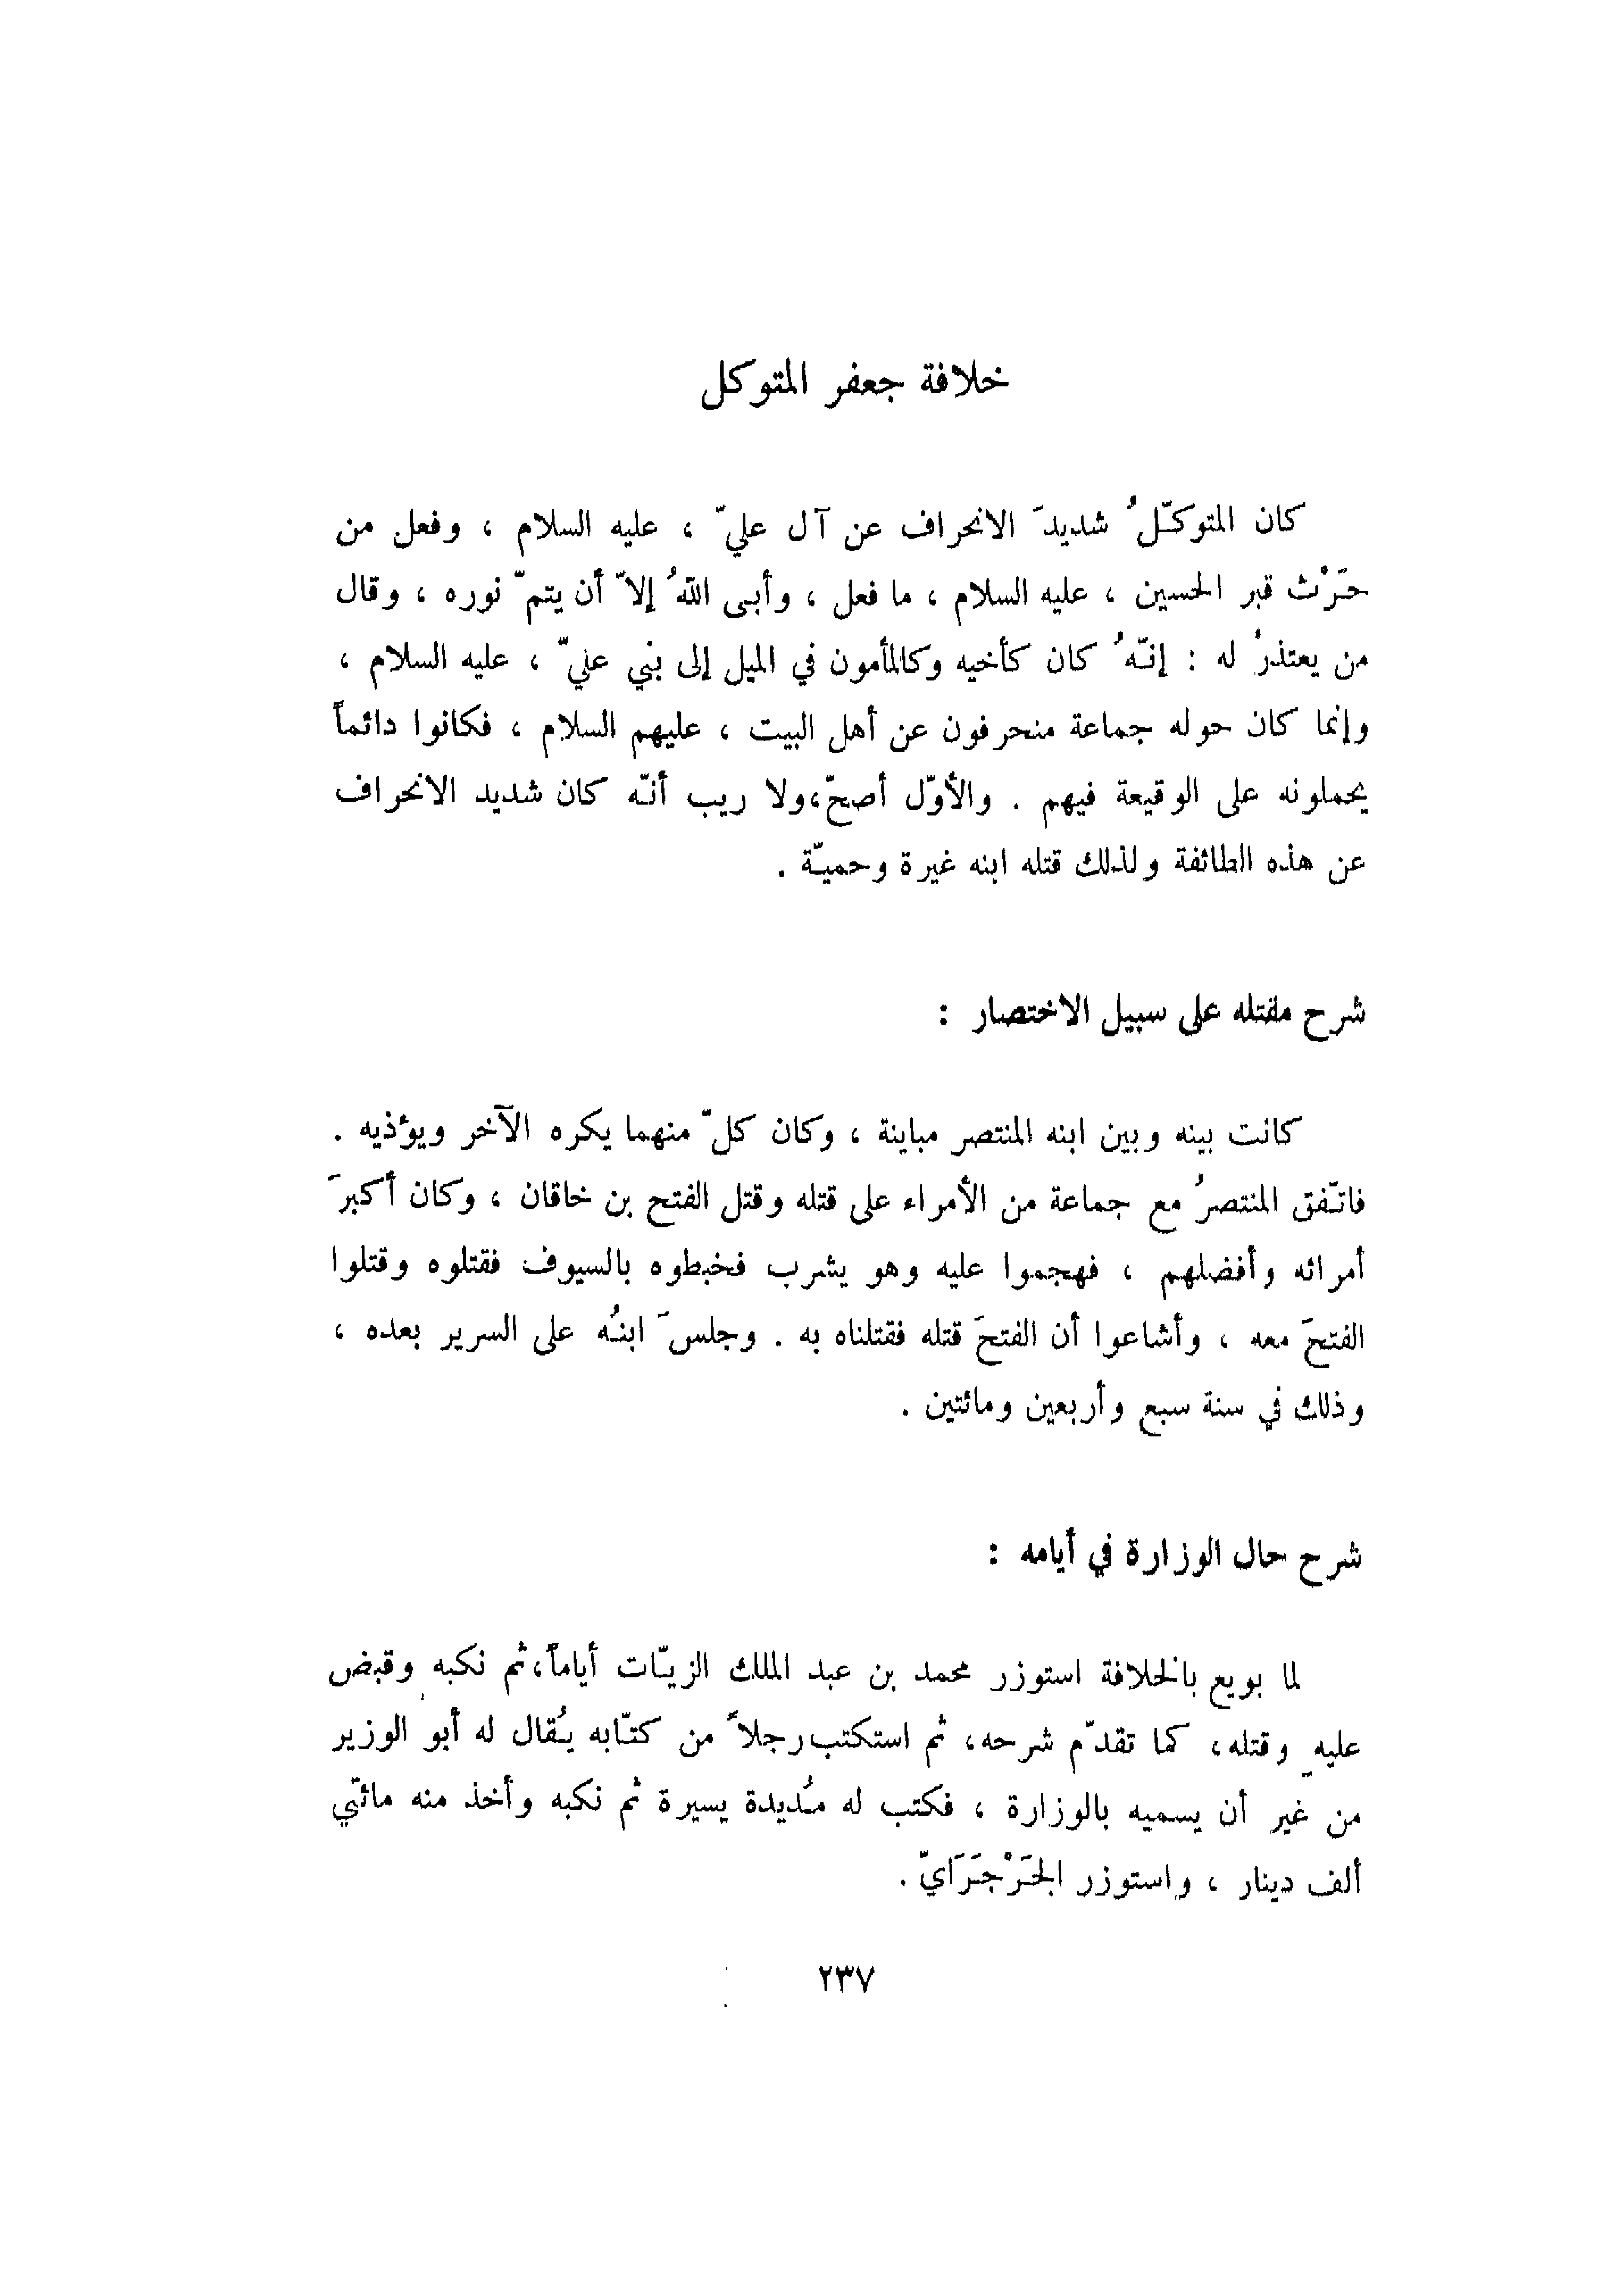 خلافة جعفر المتوكل
كان المتوكّلُ شديدَ الانحراف عن آل عليّ ، عليه السلام ، وفعل من
حَرْث قبر الحسين ، عليه السلام ، ما فعل ، وأبى اللهُ إلاّ أن يتمّ نوره ، وقال
من يعتذرُ له : إنّهُ كان كأخيه وكالمأمون في الميل إلى بني عليّ ، عليه السلام ،
وإنما كان حوله جماعة منحرفون عن أهل البيت ، عليهم السلام ، فكانوا دائماً
يحملونه على الوقيعة فيهم . والأوّل أصحّ،ولا ريب أنّه كان شديد الانحراف
عن هذه الطائفة ولذلك قتله ابنه غيرة وحميّة .
شرح مقتله على سبيل الاختصار :
كانت بينه وبين ابنه المنتصر مباينة ، وكان كلّ منهما يكره الآخر ويؤذيه .
فاتّفق المنتصرُ مع جماعة من الأمراء على قتله وقتل الفتح بن خاقان ، وكان أكبرَ
أمرائه وأفضلهم ، فهجموا عليه وهو يشرب فخبطوه بالسيوف فقتلوه وقتلوا
الفتحَ معه ، وأشاعوا أن الفتحَ قتله فقتلناه به . وجلسَ ابنُه على السرير بعده ،
وذلك في سنة سبع وأربعين ومائتين .
شرح حال الوزارة في أيامه :
لما بويع بالخلافة استوزر محمد بن عبد الملك الزيّات أياماً،ثم نكبه وقبض
عليه وقتله، كما تقدّم شرحه، ثم استكتب رجلاً من كتّابه يُقال له أبو الوزير
من غير أن يسميه بالوزارة ، فكتب له مُديدة يسيرة ثم نكبه وأخذ منه مائتي
ألف دينار ، واستوزر الجَرْجَرَايّ .
٢٣٧